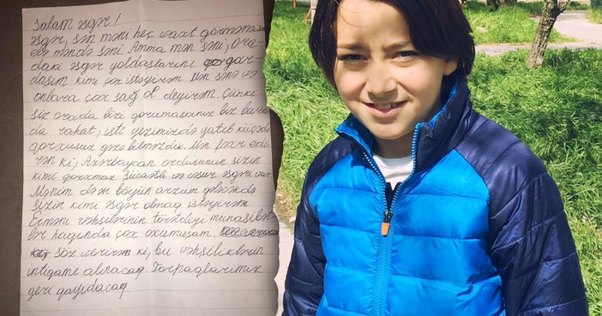 Salam əsgər!
Əsgər, sən məni heç vaxt görməmisən
elə məndə səni. Amma mən səni, ora-
dakı əsgər yoldaşlarını qar-
daşım kimi çox istəyirəm. Mən sənə və
onlara çox sağ ol deyirəm. Çünki
siz orada bizi qorumasanız biz bura-
da rahat, isti yerimizdə yatıb küçədə
qorxusuz gəzə bilmərdik. Mən fəxr edi-
rəm ki, Azərbaycan ordusunun sizin
kimi qorxmaz, və cəsur əsgəri var.
Mənim böyük arzum gələcəkdə
sizin kimi əsgər olmaq istəyirəm.
Erməni vəhşilərinin törətdiyi münasibət-
lər haqında çox oxumuşam
söz verirəm ki, bu vəhşiliklərin
intiqamı alınacaq. Torpaqlarımız
geri qayıdacaq.